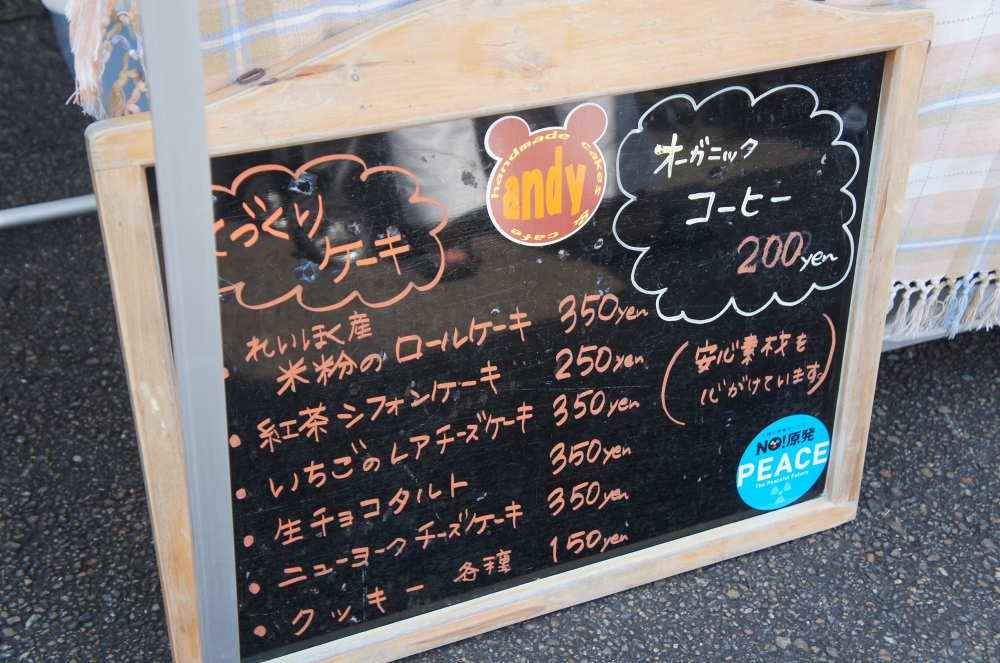 づくり
ケーキ
handmade cakes
andy
cafe
オーガニック
コーヒー
200yen
れいほく産
米粉のロールケーキ 350yen
・紅茶シフォンケーキ 250yen
・いちごのレアチーズケーキ 350yen
・生チョコタルト 350yen
・ニューヨークチーズケーキ 350yen
・クッキー 各種 150yen
(安心素材を
心がけています。)
NO!原発
PEACE
The Peaceful Future